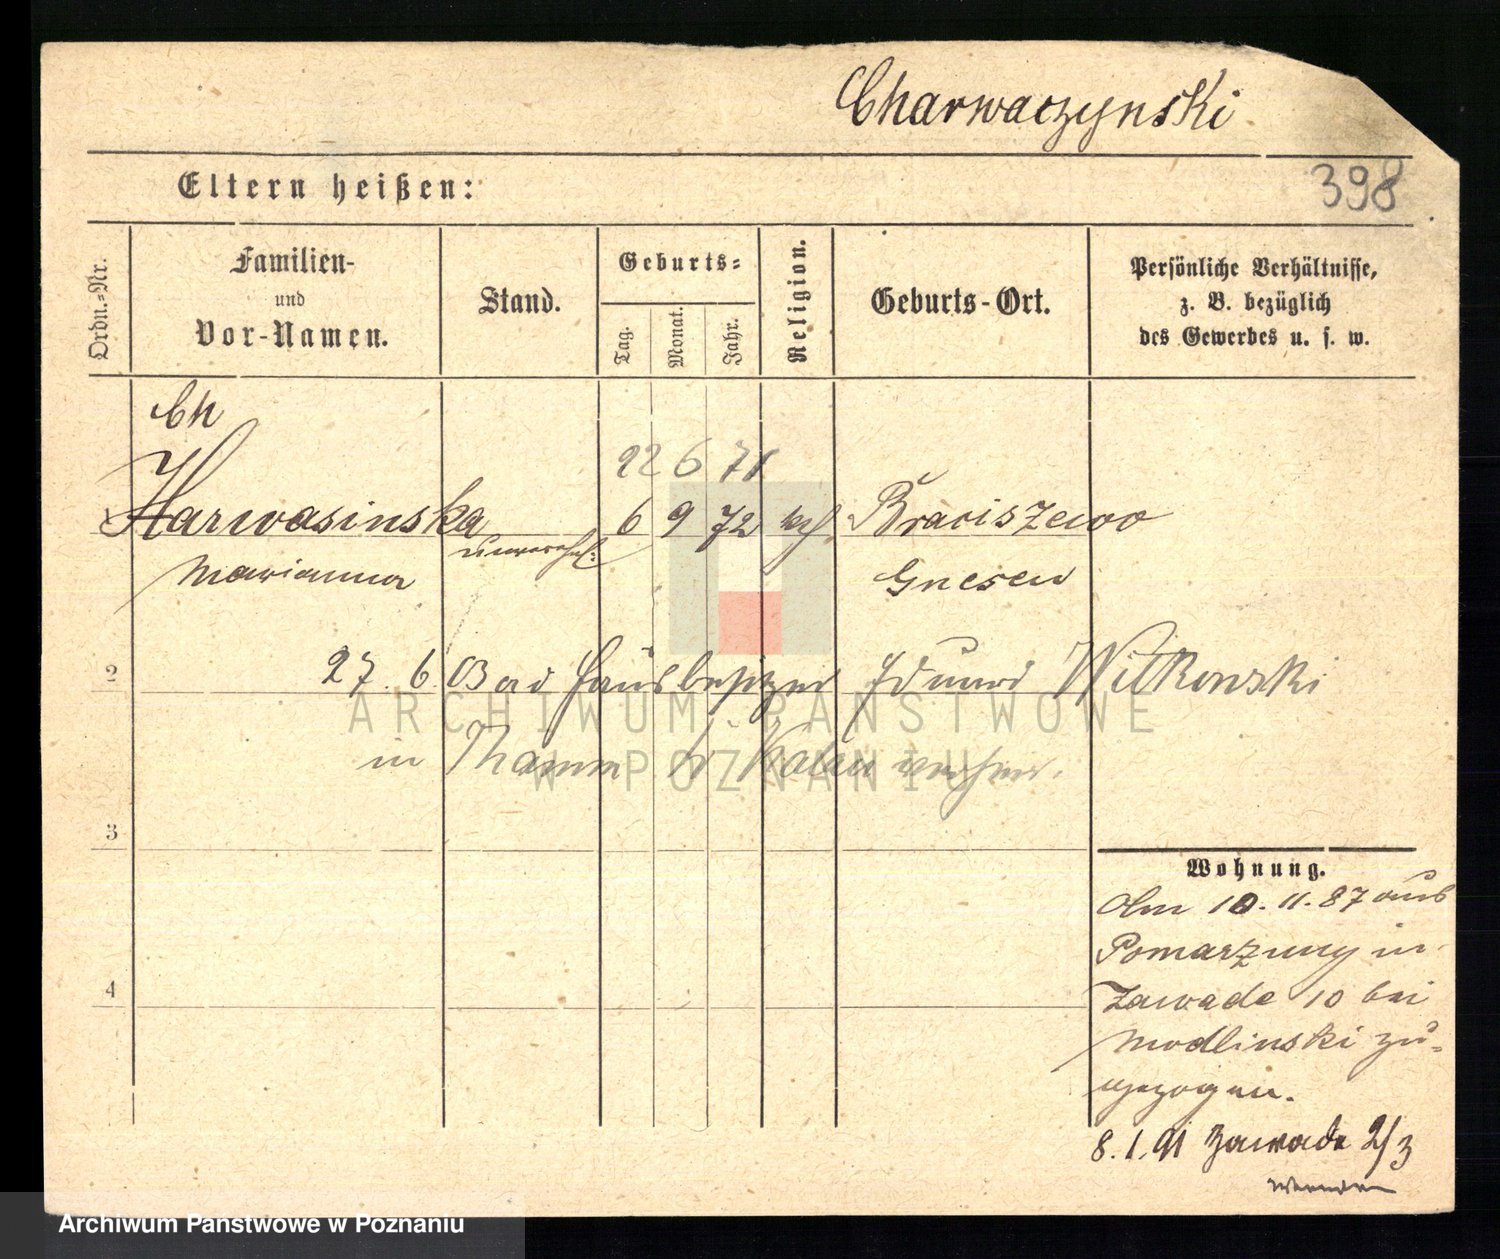 Charwaczynski
398
Eltern heißen:
Ordn.-Nr.
Familien-
und
Vor-Namen.
Stand.
Geburts-
Tag.
Monat.
Jahr.
Religion.
Geburts-Ort.
Persönliche Verhältnisse,
z. B. bezüglich
des Gewerbes u. s. w.
Ch
22 6 71
1 Harwasinska 6 9 72 kth. Braciszewo
unverehel.
Marianna Gnesen
2 27. 6. 03 Bad Hausbesitzer Eduard Witkowski
in Thamm b/ Kolau
3
Wohnung.
Am 10. 11. 87 aus
Pomarzany in
4 Zawade 10 bei
Modlinski zu-
gezogen.
8. 1. 91 Zawade 2/3
ARCHIWUM PAŃSTWOWE
W POZNANIU
Archiwum Państwowe w Poznaniu